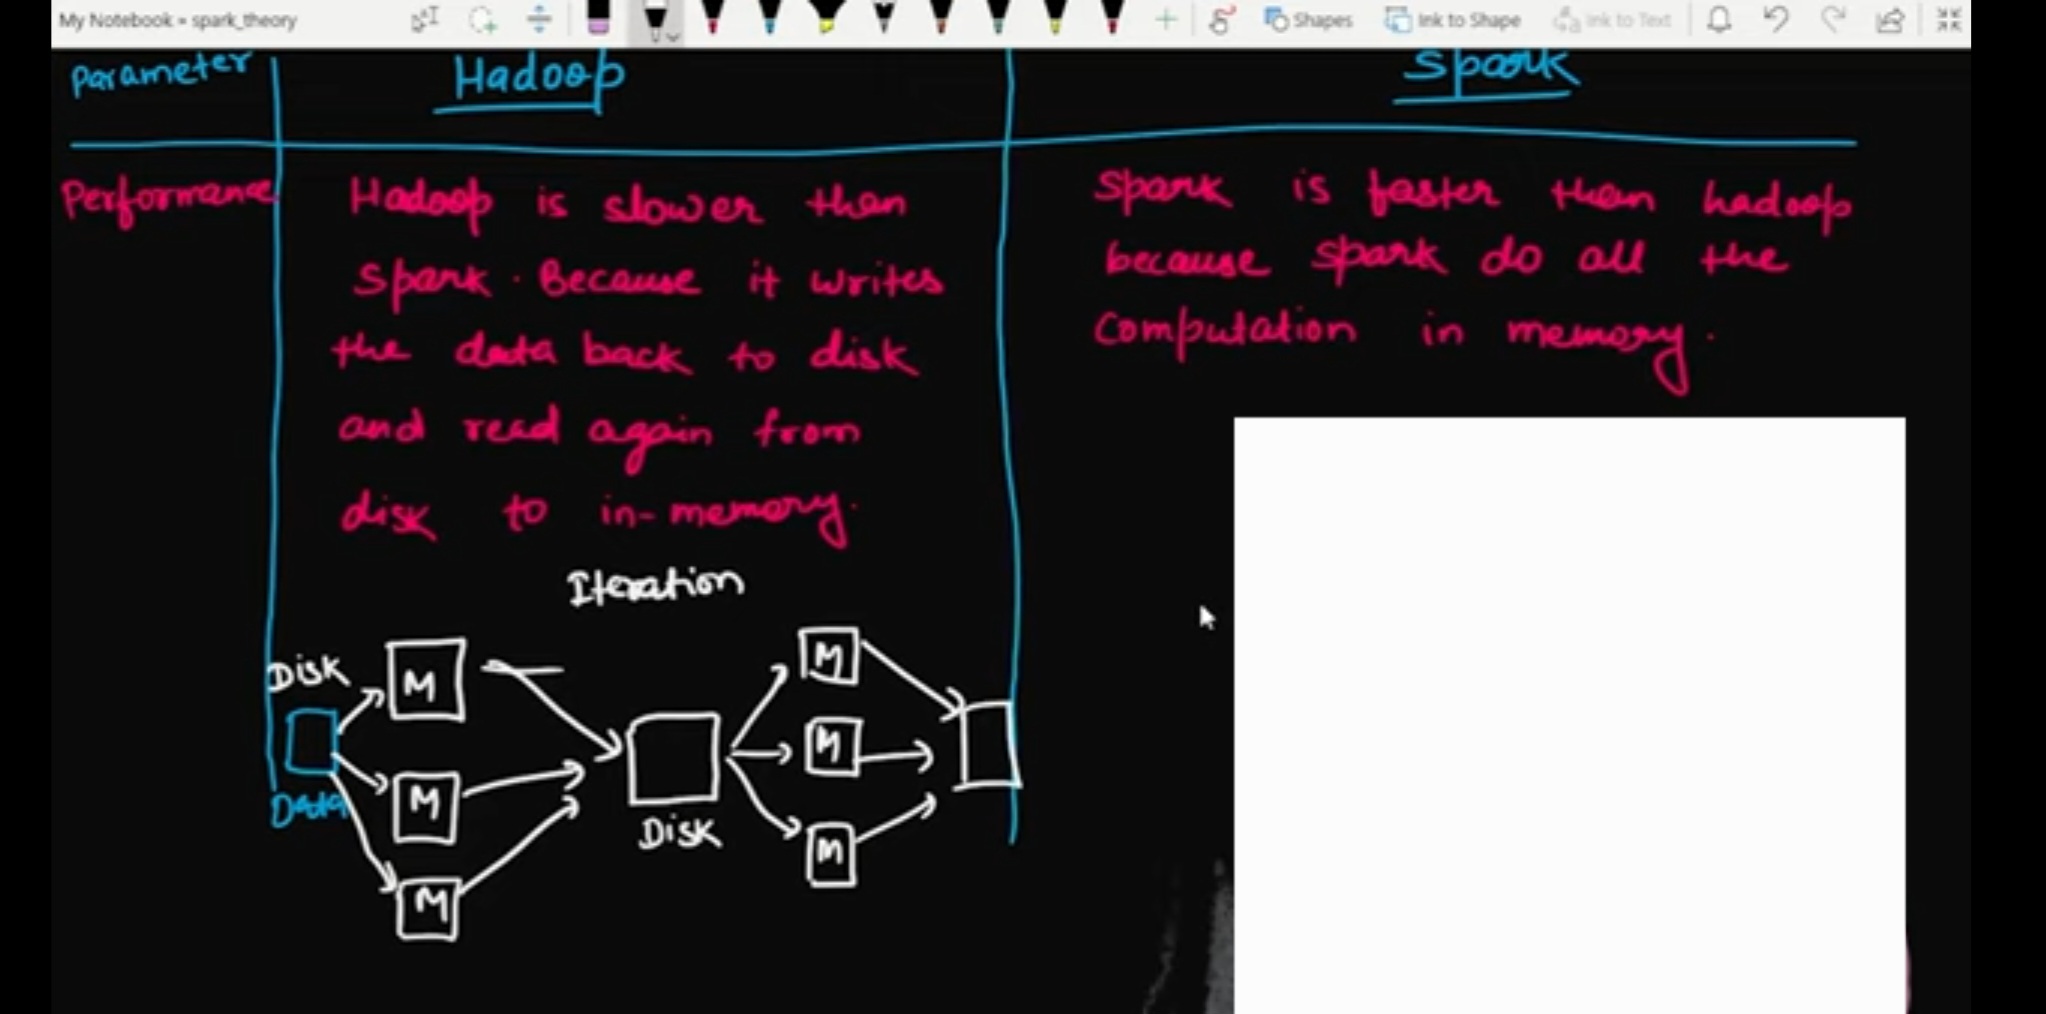 My Notebook » spark_theory
Shapes
Ink to Shape
Ink to Text
Parameter
Hadoop
Spark
Performance
Hadoop is slower than
spark. Because it writes
the data back to disk
and read again from
disk to in-memory.
Spark is faster than hadoop
because spark do all the
computation in memory.
Iteration
Disk
Data
M
M
M
Disk
M
M
M